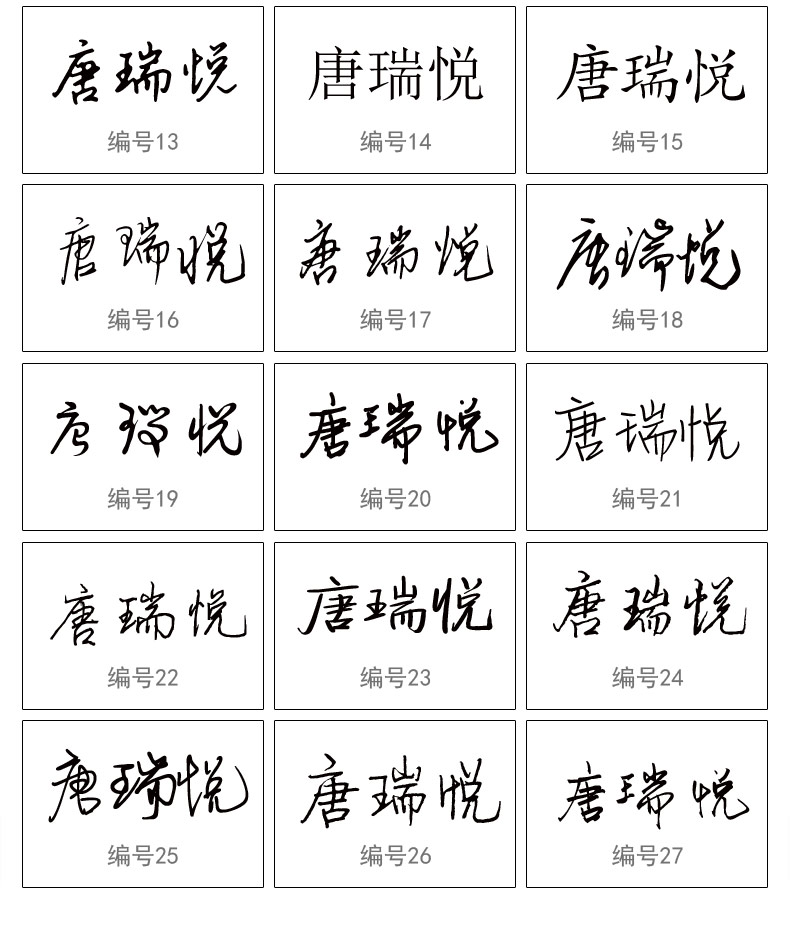 唐瑞悦 唐瑞悦 唐瑞悦
编号13 编号14 编号15
唐瑞悦 唐瑞悦 唐瑞悦
编号16 编号17 编号18
唐瑞悦 唐瑞悦 唐瑞悦
编号19 编号20 编号21
唐瑞悦 唐瑞悦 唐瑞悦
编号22 编号23 编号24
唐瑞悦 唐瑞悦 唐瑞悦
编号25 编号26 编号27